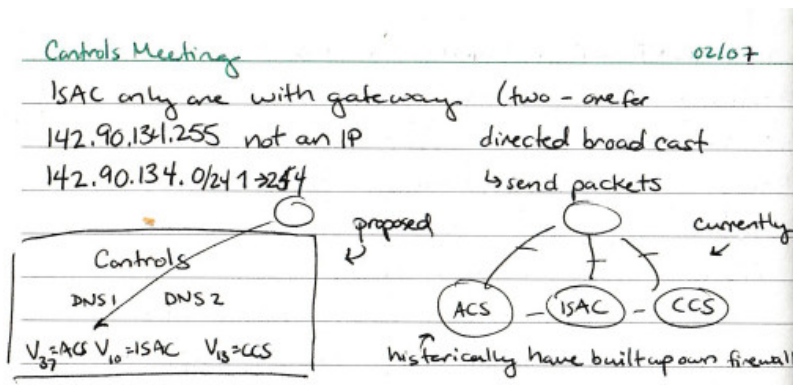 Controls Meeting 02/07
ISAC only one with gateway (two - one for
142.90.134.255 not an IP directed broad cast
142.90.134.0/24 1→254 ↳send packets
proposed currently
Controls
DNS1 DNS2
ACS - ISAC - CCS
V37=ACS V10=ISAC V18=CCS
historically have built up own firewall